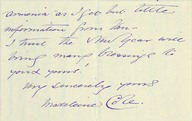 Armenia as I get but little
information from him -
I trust the New Year will
bring many blessings to
you & yours,
Very sincerely yours
Madeleine Cole.